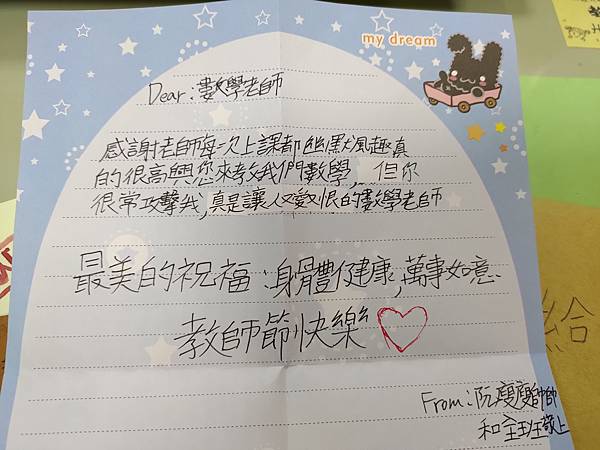 my dream
Dear:數學老師
感謝老師每次上課都幽默風趣真
的很高興您來教我們數學,但你
很常攻擊我,真是讓人又愛又恨的數學老師
最美的祝福:身體健康,萬事如意.
教師節快樂♡
給
From:阮瘦瘦帥帥
和全班敬上